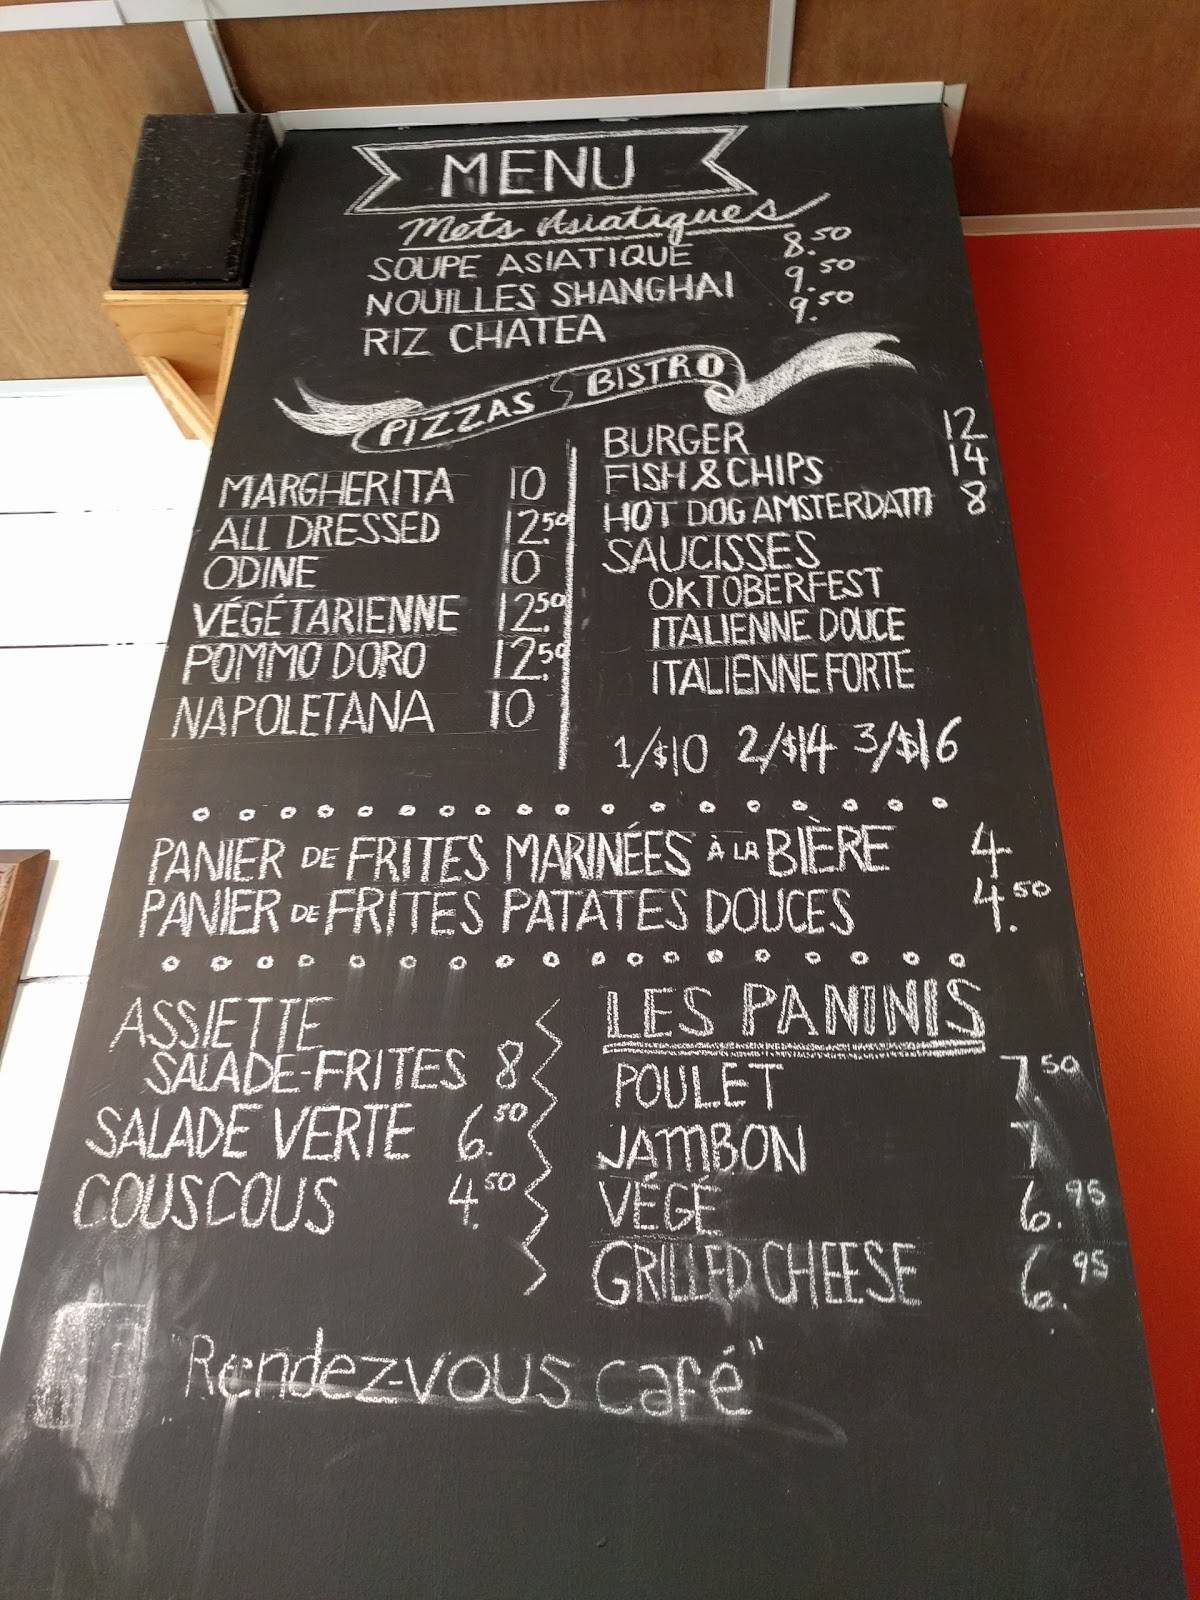 MENU
Mets Asiatiques
SOUPE ASIATIQUE 8.50
NOUILLES SHANGHAI 9.50
RIZ CHATEA 9.50
PIZZAS BISTRO
MARGHERITA 10
ALL DRESSED 12.50
ODINE 10
VÉGÉTARIENNE 12.50
POMMO DORO 12.50
NAPOLETANA 10
BURGER 12
FISH & CHIPS 14
HOT DOG AMSTERDAM 8
SAUCISSES
OKTOBERFEST
ITALIENNE DOUCE
ITALIENNE FORTE
1/$10 2/$14 3/$16
PANIER DE FRITES MARINÉES À LA BIÈRE 4
PANIER DE FRITES PATATES DOUCES 4.50
ASSIETTE
SALADE-FRITES 8
SALADE VERTE 6.50
COUSCOUS 4.50
LES PANINIS
POULET 7.50
JAMBON 7
VÉGÉ 6.95
GRILLED CHEESE 6.95
"Rendez-vous café"